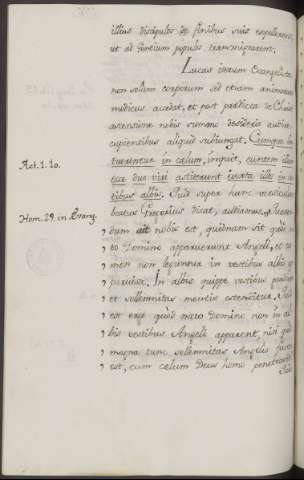 illius discipulos de finibus suis expellerent,
ut ad Gentium populos transmigrarent.
Lucas iterum Evangelista
non solum corporum sed etiam animarum
medicus accedat, et post praedicta de Christi
ascensione nobis
cupientibus aliquid subiungat. Cumque in
tuerentur in caelum, inquit, euntem illum
ecce duo viri astiterunt iuxta illos in ves
tibus albis. Quid super hunc versiculum
beatus Gregorius dicat, audiamus. Quaeren
dum nobis est, quidnam sit quod na
to Domino apparuerunt Angeli, et ta
men non leguntur in vestibus albis ap
paruisse. In albis quippe vestibus gaudium
et sollemnitas mentis ostenditur. Quid
est ergo quod nato Domino non in al
bis vestibus Angeli apparent, nisi quod
magna tunc sollemnitas Angelis facta
est, cum caelum Deus homo penetravit.
Act. 1. 10.
Hom. 29. in Evang.